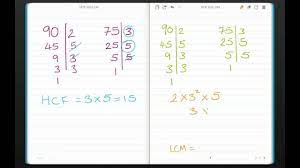 90 2 75 3
45 5 25 5
9 3 5 5
3 3 1
1
HCF = 3×5=15
90 2 75 3
45 5 25 5
9 3 5 5
3 3 1
1
2×3²×5
3
LCM =